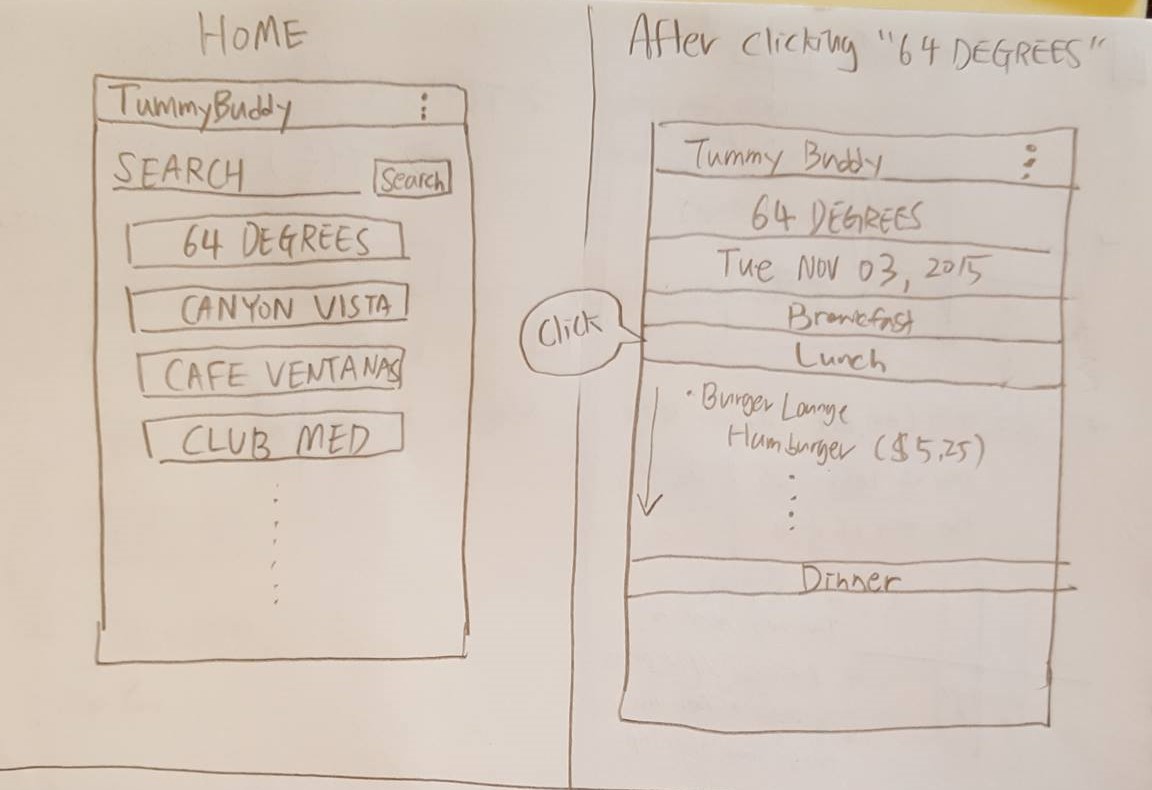 HOME
TummyBuddy
SEARCH
Search
64 DEGREES
CANYON VISTA
CAFE VENTANAS
CLUB MED
After clicking "64 DEGREES"
Tummy Buddy
64 DEGREES
Tue NOV 03, 2015
Breakfast
Click
Lunch
• Burger Lounge
Hamburger ($5.25)
Dinner